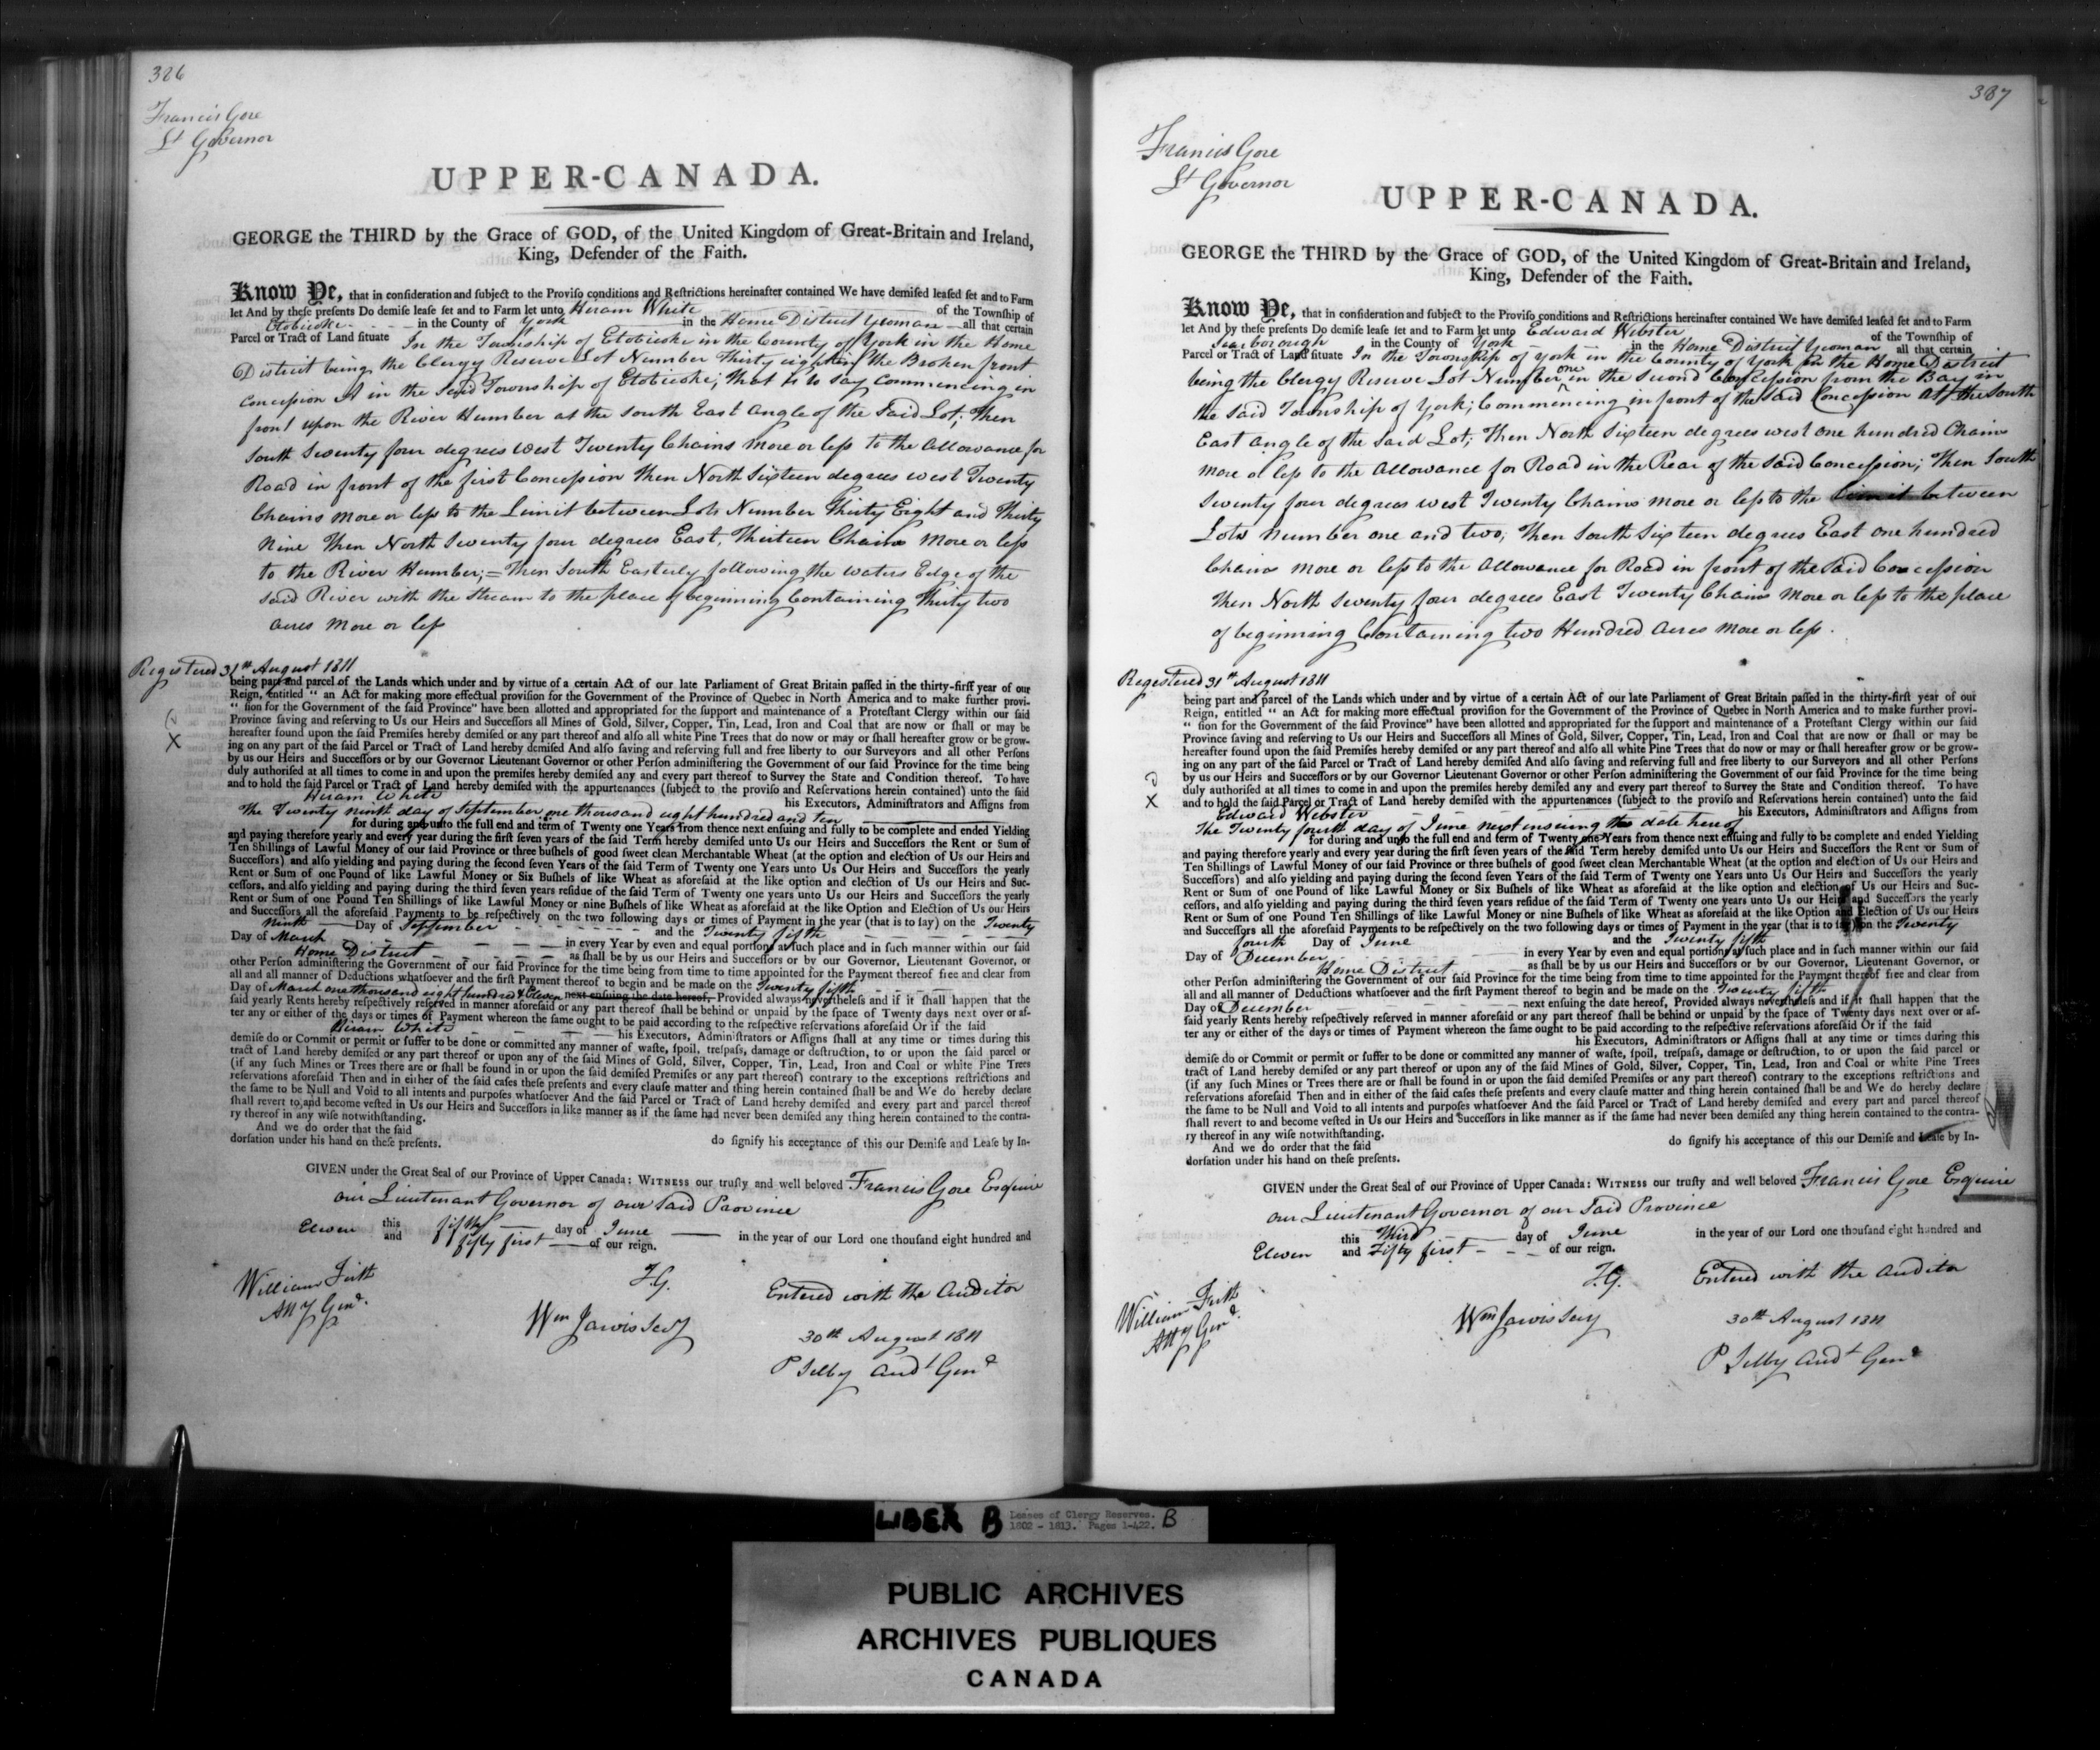 326
Francis Gore
Lt Governor
UPPER-CANADA.
GEORGE the THIRD by the Grace of GOD, of the United Kingdom of Great-Britain and Ireland,
King, Defender of the Faith.
Know Ye, that in consideration and subject to the Proviso conditions and Restrictions hereinafter contained We have demised leased set and to Farm
let And by these presents Do demise lease set and to Farm let unto Hiram White of the Township of
Etobicoke in the County of York in the Home District Yeoman all that certain
Parcel or Tract of Land situate In the Township of Etobicoke in the County of York in the Home
District being the Clergy Reserve Lot Number Thirty eight in the Broken front
Concession A in the Said Township of Etobicoke; that is to say Commencing in
front upon the River Humber at the South East Angle of the Said Lot; Then
South Seventy four degrees West Twenty Chains more or less to the Allowance for
Road in front of the first Concession Then North Sixteen degrees west Twenty
Chains more or less to the Limit between Lots Number Thirty Eight and Thirty
Nine Then North Seventy four degrees East, Thirteen Chains more or less
to the River Humber; = Then South Easterly following the waters Edge of the
said River with the stream to the place of beginning Containing Thirty two
acres more or less
Registered 31st August 1811
being part and parcel of the Lands which under and by virtue of a certain Act of our late Parliament of Great Britain passed in the thirty-first year of our
Reign, entitled " an Act for making more effectual provision for the Government of the Province of Quebec in North America and to make further provi-
" sion for the Government of the said Province" have been allotted and appropriated for the support and maintenance of a Protestant Clergy within our said
Province saving and reserving to Us our Heirs and Successors all Mines of Gold, Silver, Copper, Tin, Lead, Iron and Coal that are now or shall or may be
hereafter found upon the said Premises hereby demised or any part thereof and also all white Pine Trees that do now or may or shall hereafter grow or be grow-
X
ing on any part of the said Parcel or Tract of Land hereby demised And also saving and reserving full and free liberty to our Surveyors and all other Persons
by us our Heirs and Successors or by our Governor Lieutenant Governor or other Person administering the Government of our said Province for the time being
duly authorised at all times to come in and upon the premises hereby demised any and every part thereof to Survey the State and Condition thereof. To have
and to hold the said Parcel or Tract of Land hereby demised with the appurtenances (subject to the proviso and Reservations herein contained) unto the said
Hiram White his Executors, Administrators and Assigns from
The Twenty ninth day of September one thousand eight hundred and ten
for during and unto the full end and term of Twenty one Years from thence next ensuing and fully to be complete and ended Yielding
and paying therefore yearly and every year during the first seven years of the said Term hereby demised unto Us our Heirs and Successors the Rent or Sum of
Ten Shillings of Lawful Money of our said Province or three bushels of good sweet clean Merchantable Wheat (at the option and election of Us our Heirs and
Successors) and also yielding and paying during the second seven Years of the said Term of Twenty one Years unto Us Our Heirs and Successors the yearly
Rent or Sum of one Pound of like Lawful Money or Six Bushels of like Wheat as aforesaid at the like option and election of Us our Heirs and Suc-
cessors, and also yielding and paying during the third seven years residue of the said Term of Twenty one years unto Us our Heirs and Successors the yearly
Rent or Sum of one Pound Ten Shillings of like Lawful Money or nine Bushels of like Wheat as aforesaid at the like Option and Election of Us our Heirs
and Successors all the aforesaid Payments to be respectively on the two following days or times of Payment in the year (that is to say) on the Twenty
Ninth Day of September and the Twenty fifth
Day of March in every Year by even and equal portions at such place and in such manner within our said
Home District as shall be by us our Heirs and Successors or by our Governor, Lieutenant Governor, or
other Person administering the Government of our said Province for the time being from time to time appointed for the Payment thereof free and clear from
all and all manner of Deductions whatsoever and the first Payment thereof to begin and be made on the Twenty fifth
Day of March one thousand eight hundred & Eleven next ensuing the date hereof, Provided always nevertheless and if it shall happen that the
said yearly Rents hereby respectively reserved in manner aforesaid or any part thereof shall be behind or unpaid by the space of Twenty days next over or af-
ter any or either of the days or times of Payment whereon the same ought to be paid according to the respective reservations aforesaid Or if the said
Hiram White his Executors, Administrators or Assigns shall at any time or times during this
demise do or Commit or permit or suffer to be done or committed any manner of waste, spoil, trespass, damage or destruction, to or upon the said parcel or
tract of Land hereby demised or any part thereof or upon any of the said Mines of Gold, Silver, Copper, Tin, Lead, Iron and Coal or white Pine Trees
(if any such Mines or Trees there are or shall be found in or upon the said demised Premises or any part thereof) contrary to the exceptions restrictions and
reservations aforesaid Then and in either of the said cases these presents and every clause matter and thing herein contained shall be and We do hereby declare
the same to be Null and Void to all intents and purposes whatsoever And the said Parcel or Tract of Land hereby demised and every part and parcel thereof
shall revert to and become vested in Us our Heirs and Successors in like manner as if the same had never been demised any thing herein contained to the contra-
ry thereof in any wise notwithstanding.
And we do order that the said do signify his acceptance of this our Demise and Lease by In-
dorsation under his hand on these presents.
GIVEN under the Great Seal of our Province of Upper Canada: WITNESS our trusty and well beloved Francis Gore Esquire
our Lieutenant Governor of our said Province
this fifth day of June in the year of our Lord one thousand eight hundred and
Eleven and fifty first of our reign.
William Firth
Atty Genl.
F.G.
Wm Jarvis Secy
Entered with the Auditor
30th August 1811
P Selby Audt Genl
387
Francis Gore
Lt Governor
UPPER-CANADA.
GEORGE the THIRD by the Grace of GOD, of the United Kingdom of Great-Britain and Ireland,
King, Defender of the Faith.
Know Ye, that in consideration and subject to the Proviso conditions and Restrictions hereinafter contained We have demised leased set and to Farm
let And by these presents Do demise lease set and to Farm let unto Edward Webster of the Township of
Scarborough in the County of York in the Home District Yeoman all that certain
Parcel or Tract of Land situate In the Township of York in the County of York in the Home District
being the Clergy Reserve Lot Number one in the Second Concession from the Bay in
the said Township of York; Commencing in front of the said Concession at the South
East Angle of the said Lot; Then North Sixteen degrees west one hundred Chains
more or less to the Allowance for Road in the Rear of the said Concession; Then South
Seventy four degrees west Twenty Chains more or less to the limit between
Lots Number one and two; Then South Sixteen degrees East one hundred
Chains more or less to the Allowance for Road in front of the said Concession
Then North Seventy four degrees East Twenty Chains more or less to the place
of beginning Containing two Hundred acres more or less.
Registered 31st August 1811
being part and parcel of the Lands which under and by virtue of a certain Act of our late Parliament of Great Britain passed in the thirty-first year of our
Reign, entitled " an Act for making more effectual provision for the Government of the Province of Quebec in North America and to make further provi-
" sion for the Government of the said Province" have been allotted and appropriated for the support and maintenance of a Protestant Clergy within our said
Province saving and reserving to Us our Heirs and Successors all Mines of Gold, Silver, Copper, Tin, Lead, Iron and Coal that are now or shall or may be
hereafter found upon the said Premises hereby demised or any part thereof and also all white Pine Trees that do now or may or shall hereafter grow or be grow-
ing on any part of the said Parcel or Tract of Land hereby demised And also saving and reserving full and free liberty to our Surveyors and all other Persons
by us our Heirs and Successors or by our Governor Lieutenant Governor or other Person administering the Government of our said Province for the time being
duly authorised at all times to come in and upon the premises hereby demised any and every part thereof to Survey the State and Condition thereof. To have
X
and to hold the said Parcel or Tract of Land hereby demised with the appurtenances (subject to the proviso and Reservations herein contained) unto the said
Edward Webster his Executors, Administrators and Assigns from
The Twenty fourth day of June next ensuing the date hereof
for during and unto the full end and term of Twenty one Years from thence next ensuing and fully to be complete and ended Yielding
and paying therefore yearly and every year during the first seven years of the said Term hereby demised unto Us our Heirs and Successors the Rent or Sum of
Ten Shillings of Lawful Money of our said Province or three bushels of good sweet clean Merchantable Wheat (at the option and election of Us our Heirs and
Successors) and also yielding and paying during the second seven Years of the said Term of Twenty one Years unto Us Our Heirs and Successors the yearly
Rent or Sum of one Pound of like Lawful Money or Six Bushels of like Wheat as aforesaid at the like option and election of Us our Heirs and Suc-
cessors, and also yielding and paying during the third seven years residue of the said Term of Twenty one years unto Us our Heirs and Successors the yearly
Rent or Sum of one Pound Ten Shillings of like Lawful Money or nine Bushels of like Wheat as aforesaid at the like Option and Election of Us our Heirs
and Successors all the aforesaid Payments to be respectively on the two following days or times of Payment in the year (that is to say) on the Twenty
fourth Day of June and the Twenty fifth
Day of December in every Year by even and equal portions at such place and in such manner within our said
Home District as shall be by us our Heirs and Successors or by our Governor, Lieutenant Governor, or
other Person administering the Government of our said Province for the time being from time to time appointed for the Payment thereof free and clear from
all and all manner of Deductions whatsoever and the first Payment thereof to begin and be made on the Twenty fifth
Day of December next ensuing the date hereof, Provided always nevertheless and if it shall happen that the
said yearly Rents hereby respectively reserved in manner aforesaid or any part thereof shall be behind or unpaid by the space of Twenty days next over or af-
ter any or either of the days or times of Payment whereon the same ought to be paid according to the respective reservations aforesaid Or if the said
his Executors, Administrators or Assigns shall at any time or times during this
demise do or Commit or permit or suffer to be done or committed any manner of waste, spoil, trespass, damage or destruction, to or upon the said parcel or
tract of Land hereby demised or any part thereof or upon any of the said Mines of Gold, Silver, Copper, Tin, Lead, Iron and Coal or white Pine Trees
(if any such Mines or Trees there are or shall be found in or upon the said demised Premises or any part thereof) contrary to the exceptions restrictions and
reservations aforesaid Then and in either of the said cases these presents and every clause matter and thing herein contained shall be and We do hereby declare
the same to be Null and Void to all intents and purposes whatsoever And the said Parcel or Tract of Land hereby demised and every part and parcel thereof
shall revert to and become vested in Us our Heirs and Successors in like manner as if the same had never been demised any thing herein contained to the contra-
ry thereof in any wise notwithstanding.
And we do order that the said do signify his acceptance of this our Demise and Lease by In-
dorsation under his hand on these presents.
GIVEN under the Great Seal of our Province of Upper Canada: WITNESS our trusty and well beloved Francis Gore Esquire
our Lieutenant Governor of our said Province
this Third day of June in the year of our Lord one thousand eight hundred and
Eleven and Fifty first of our reign.
William Firth
Atty Genl.
F.G.
Wm Jarvis Secy
Entered with the Auditor
30th August 1811
P Selby Audt Genl
LIBER B Leases of Clergy Reserves. B
1802 - 1813. Pages 1-422.
PUBLIC ARCHIVES
ARCHIVES PUBLIQUES
CANADA